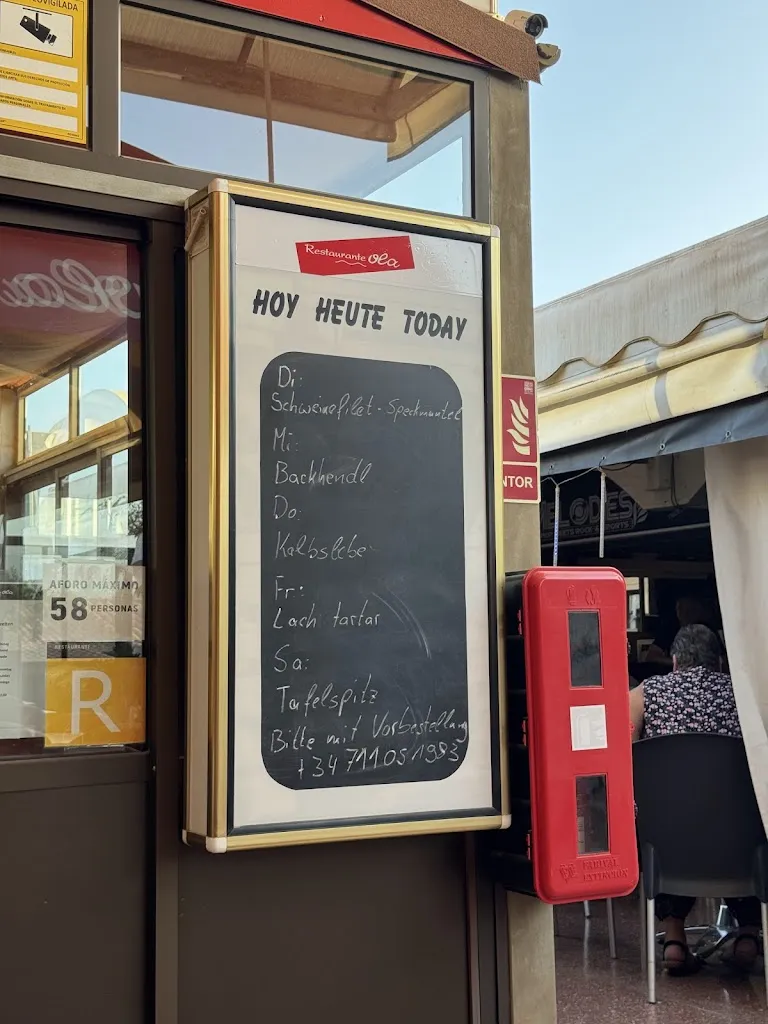 Restaurante Ola
HOY HEUTE TODAY
Di:
Schweinefilet - Speckmantel
Mi:
Backhendl
Do:
Kalbslebe
Fr:
Lach tartar
Sa:
Tafelspitz
Bitte mit Vorbestellung
+34 711051983
AFORO MÁXIMO
58 PERSONAS
RESTAURANTE
R
NTOR